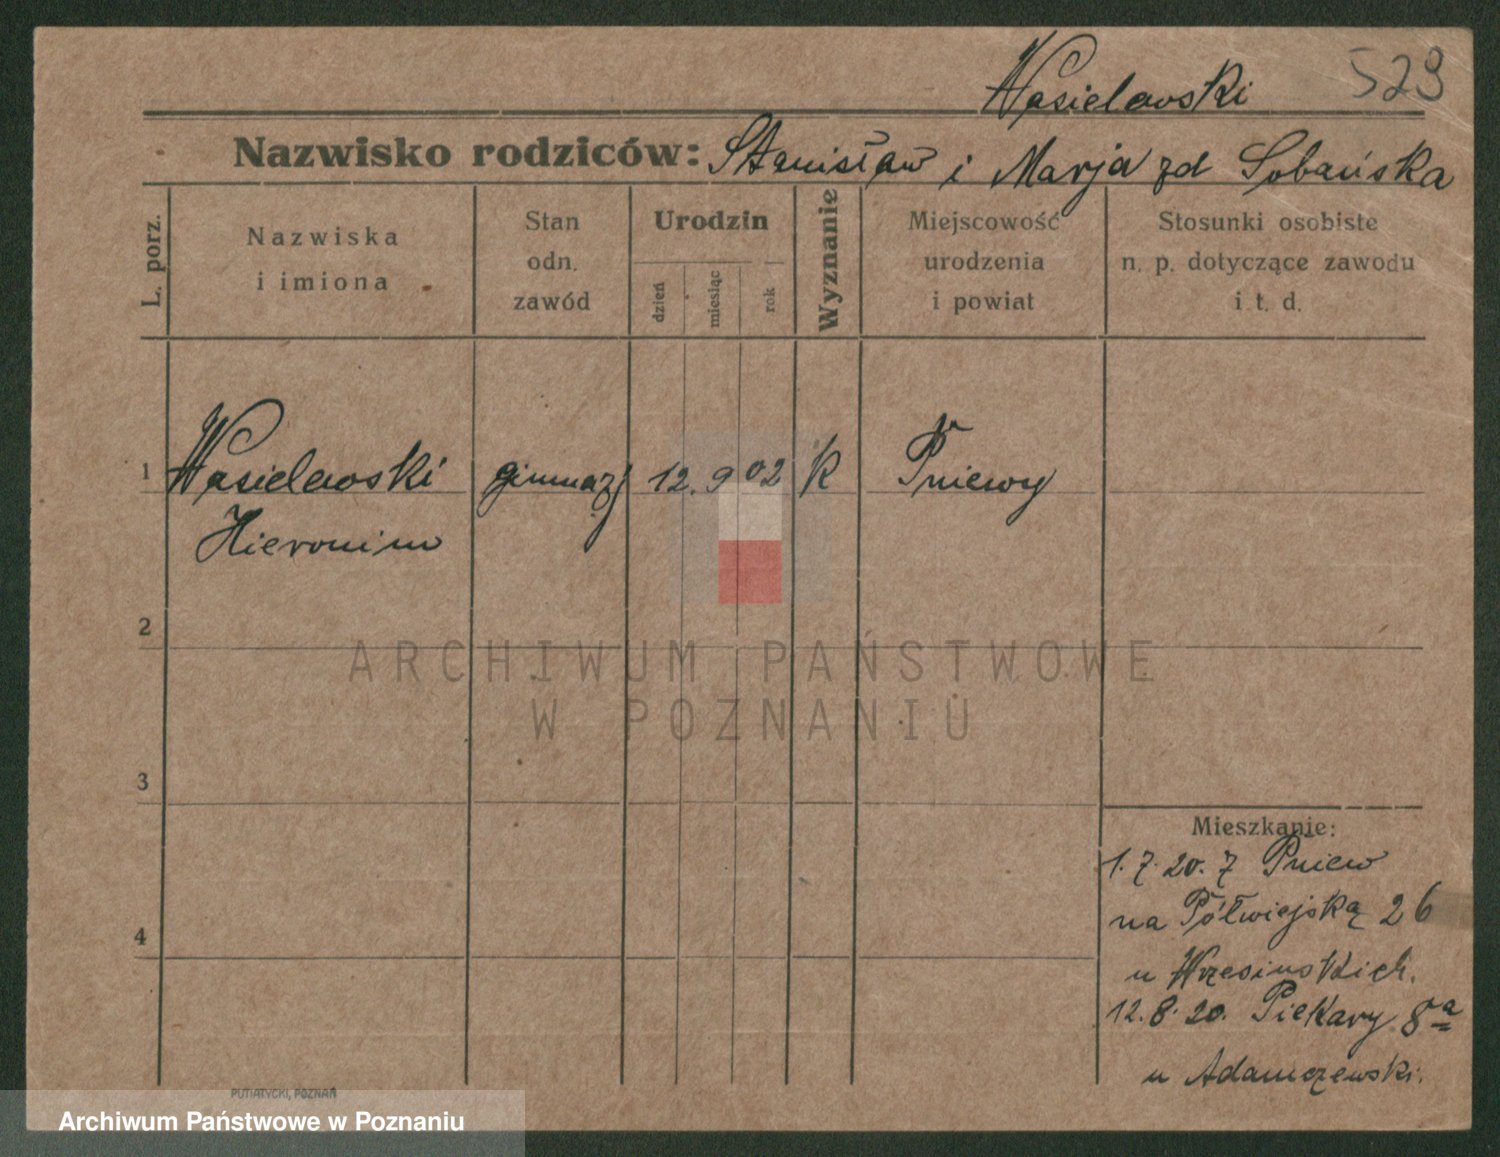 Wasielewski 529
Nazwisko rodziców: Stanisław i Marja zd Sobańska
L. porz.
Nazwiska
i imiona
Stan
odn.
zawód
Urodzin
dzień
miesiąc
rok
Wyznanie
Miejscowość
urodzenia
i powiat
Stosunki osobiste
n. p. dotyczące zawodu
i t. d.
1 Wasielewski gimnazj 12. 9 02 K Pniewy
Hieronim
2
ARCHIWUM PAŃSTWOWE
W POZNANIU
3
4
Mieszkanie:
1. 7. 20. z Pniew
na Półwiejską 26
u Wrzesinskich.
12. 8. 20. Piekary 8a
u Adamczewski.
PUTIATYCKI, POZNAŃ
Archiwum Państwowe w Poznaniu